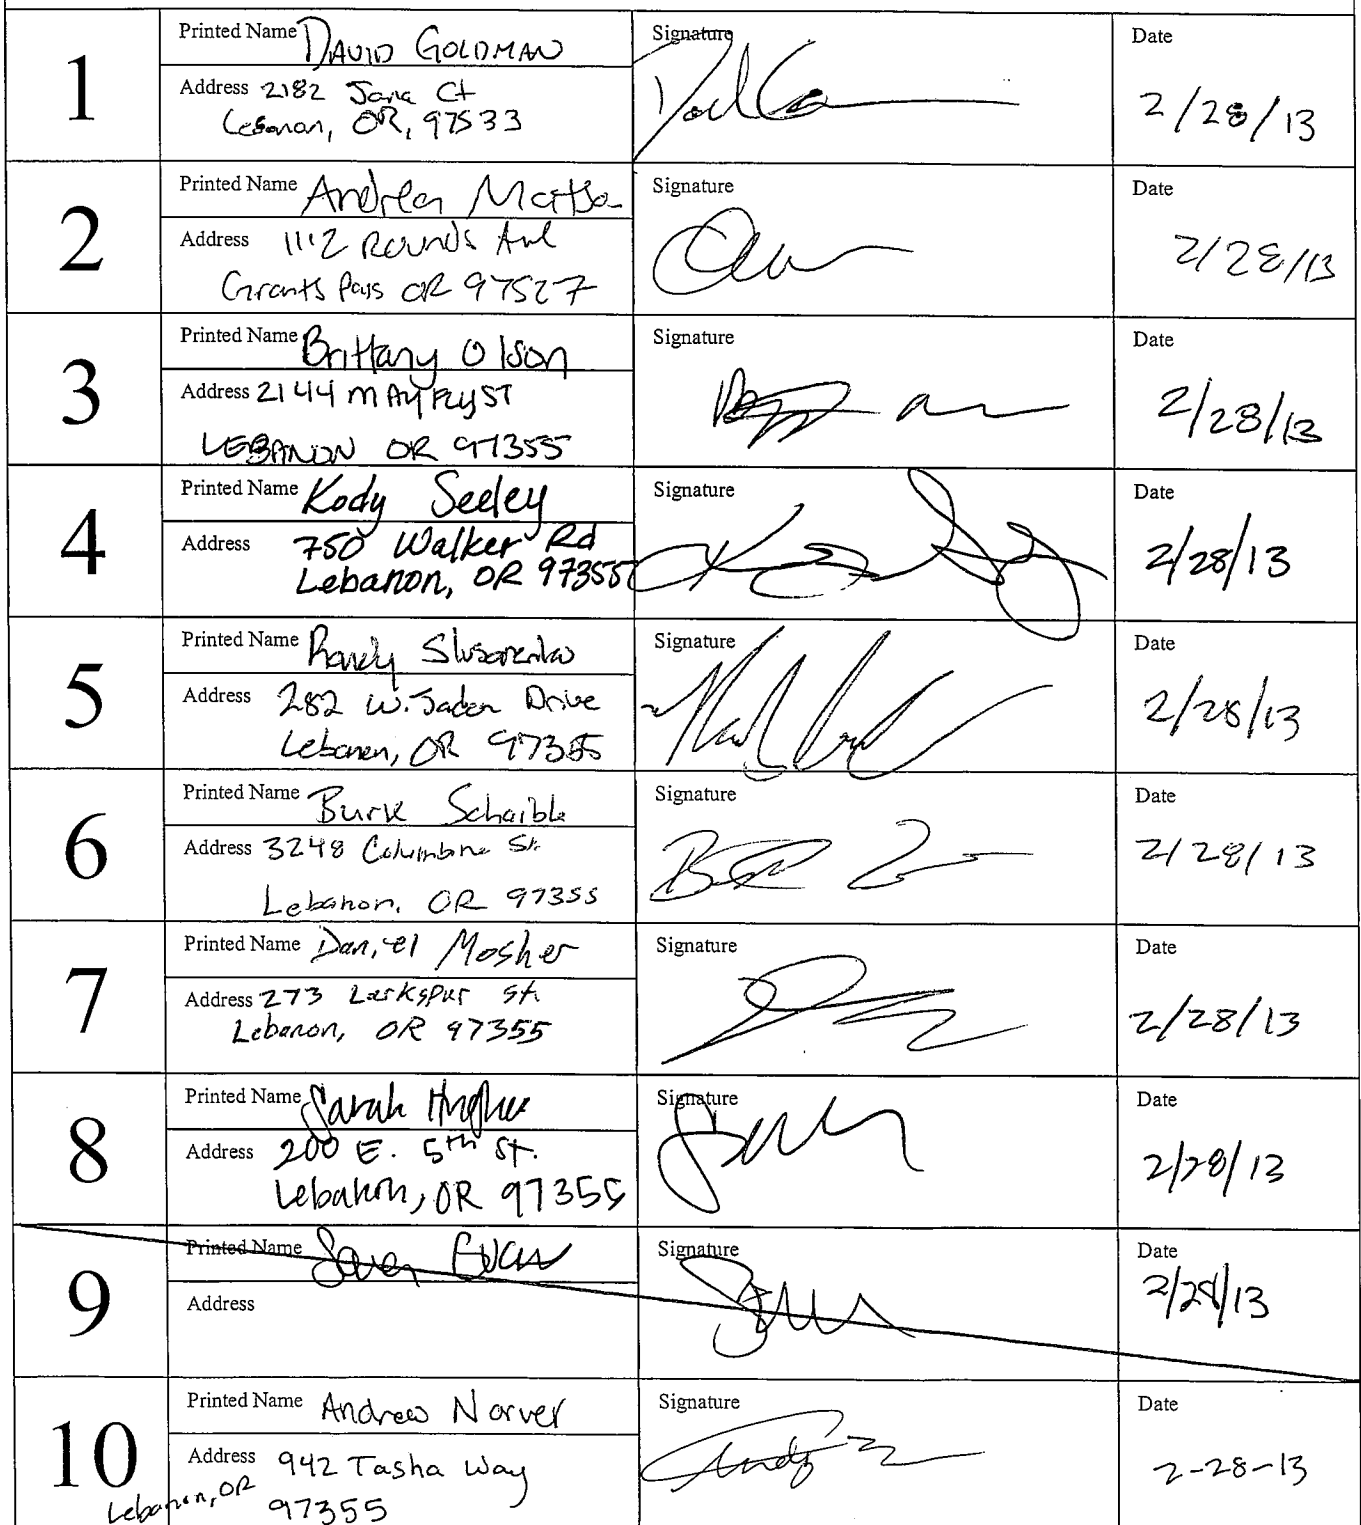 1
Printed Name DAVID GOLDMAN
Address 2182 Jana Ct
Lebanon, OR, 97533
Signature
Date
2/28/13
2
Printed Name Andrea
Address 1112 Rounds Ave
Grants Pass OR 97527
Signature
Date
2/28/13
3
Printed Name Brittany Olson
Address 2144 MAYFLY ST
LEBANON OR 97355
Signature
Date
2/28/13
4
Printed Name Kody Seeley
Address 750 Walker Rd
Lebanon, OR 97355
Signature
Date
2/28/13
5
Printed Name Randy Slusarenko
Address 282 W. Jadon Drive
Lebanon, OR 97355
Signature
Date
2/28/13
6
Printed Name Burk Schaible
Address 3248 Columbine St.
Lebanon, OR 97355
Signature
Date
2/28/13
7
Printed Name Daniel Mosher
Address 273 Larkspur St.
Lebanon, OR 97355
Signature
Date
2/28/13
8
Printed Name Sarah Hughes
Address 200 E. 5th St.
Lebanon, OR 97355
Signature
Date
2/28/13
9
Printed Name
Address
Signature
Date
2/28/13
10
Printed Name Andrew Norver
Address 942 Tasha Way
Lebanon, OR
97355
Signature
Date
2-28-13